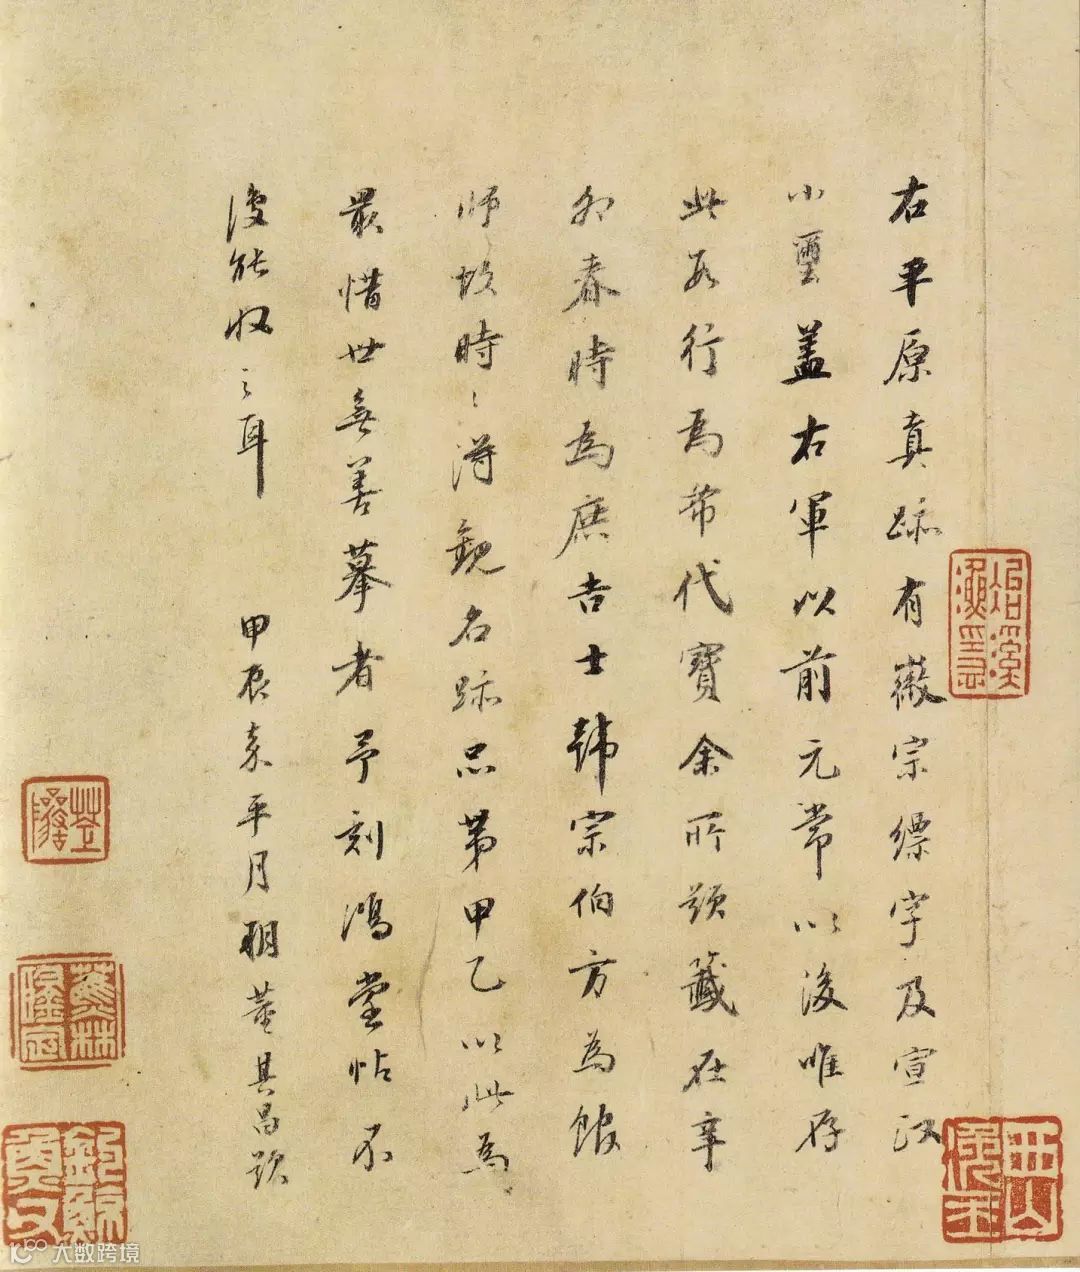 右平原真跡有徽宗縹字及宣政
小璽盖右軍以前元常以後唯存
此數行為希代寶余所題籤在辛
卯春時為庶吉士韓宗伯方為館
師故時〻得觀名跡品第甲乙以此為
最惜世無善摹者予刻鴻堂帖不
復能收之耳 甲辰嘉平月朔董其昌題
冶溪漁隱
大数跨境